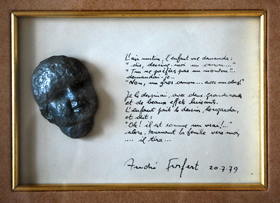 L'air mutin, l'enfant me demanda :
" dis, dessine-moi un canon..."
" Tu ne préfères pas un mouton"
demandai-je..
" Non, un gros canon... avec un
Je le dessinai, avec deux grandes roues
et de beaux effets luisants.
L'enfant prit le dessin, le regarda,
et dit :
" Oh! il est comme un vrai!.."
alors, tournant la feuille vers moi,
.... il tira...
André Forfert 20.7.79